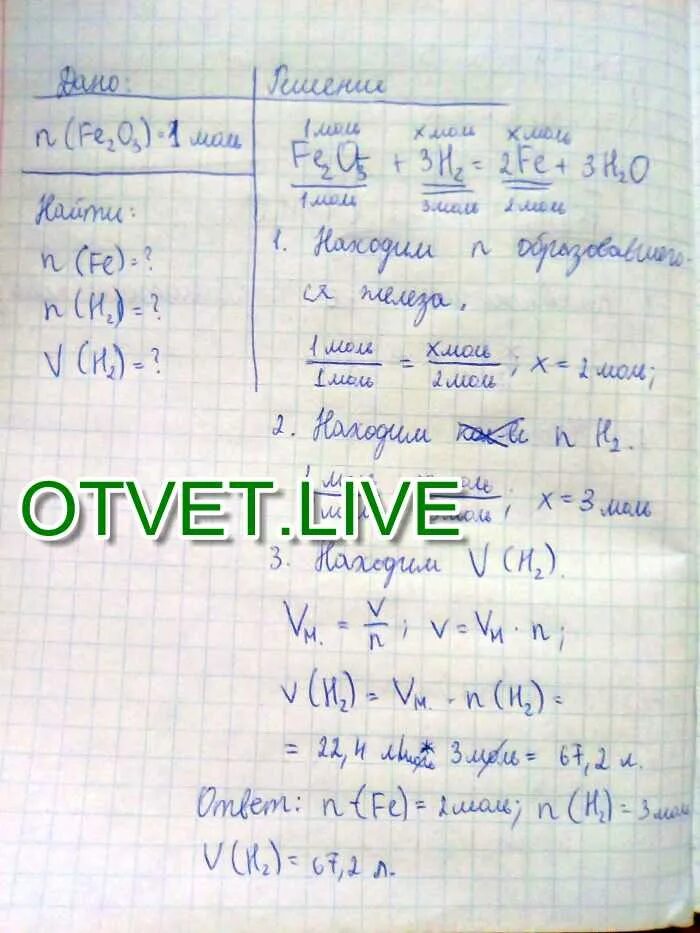 Дано:
n(Fe₂O₃)=1 моль
Найти:
n(Fe)=?
n(H₂)=?
V(H₂)=?
Решение
1моль хмоль хмоль
Fe₂O₃ + 3H₂ = 2Fe + 3H₂O
1моль 3моль 2моль
1. Находим n образовавшего-
ся железа.
1моль/1моль = хмоль/2моль; х = 2моль;
2. Находим n H₂.
х = 3 моль
OTVET.LIVE
3. Находим V(H₂).
Vм. = V/n; V = Vм · n;
V(H₂) = Vм. · n(H₂) =
= 22,4 л/моль * 3моль = 67,2 л.
Ответ: n(Fe) = 2моль; n(H₂) = 3моль
V(H₂) = 67,2 л.